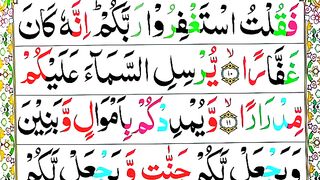 فَقُلْتُ اسْتَغْفِرُوْا رَبَّكُمْ ؕ اِنَّهٗ كَانَ
غَفَّارًا ۙ﴿۱۰﴾ یُّرْسِلِ السَّمَآءَ عَلَیْكُمْ
مِّدْرَارًا ۙ﴿۱۱﴾ وَّ یُمْدِدْكُمْ بِاَمْوَالٍ وَّ بَنِیْنَ
وَ یَجْعَلْ لَّكُمْ جَنّٰتٍ وَّ یَجْعَلْ لَّكُمْ